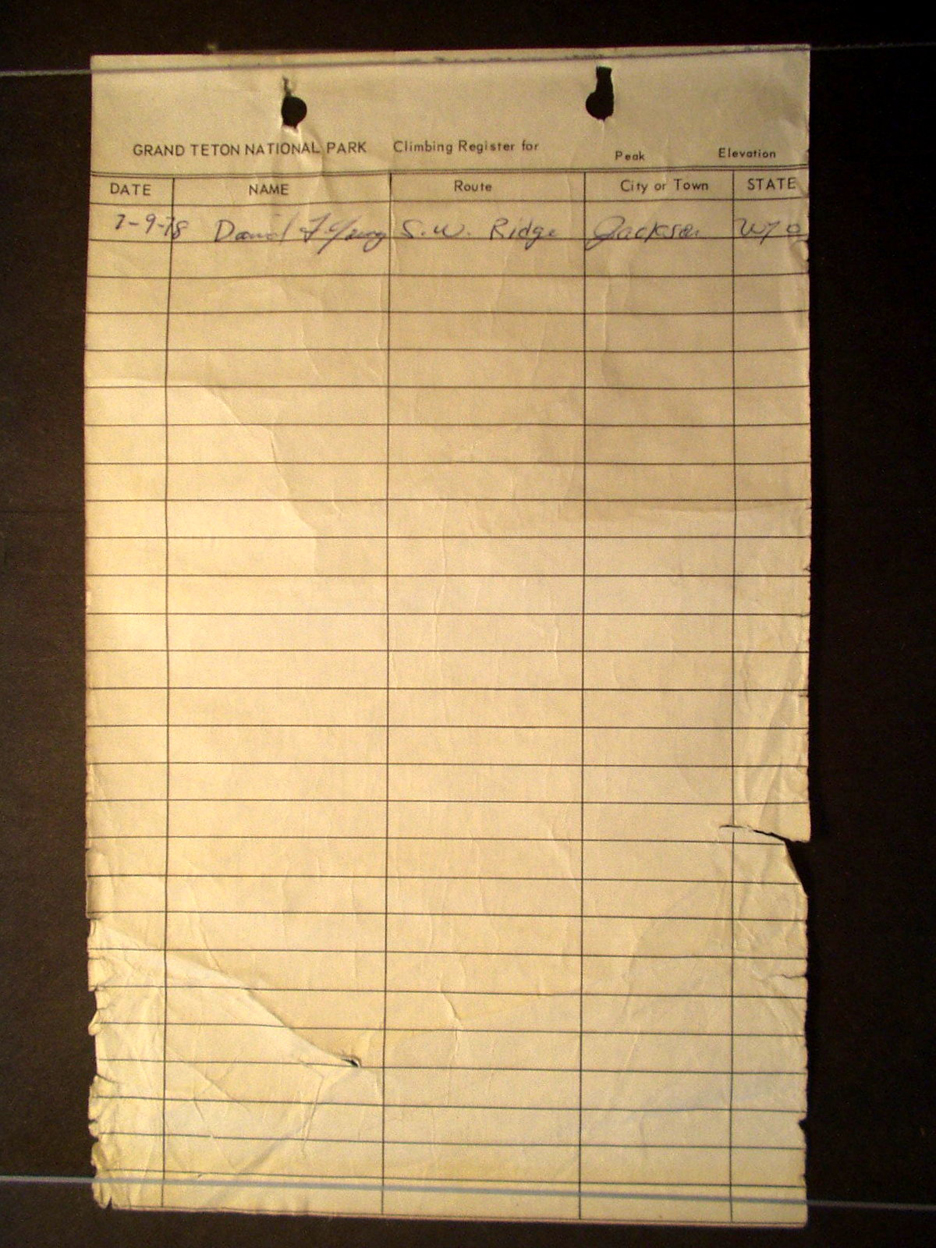 GRAND TETON NATIONAL PARK Climbing Register for Peak Elevation
DATE NAME Route City or Town STATE
7-9-78 David F. Young S.W. Ridge Jackson WYO